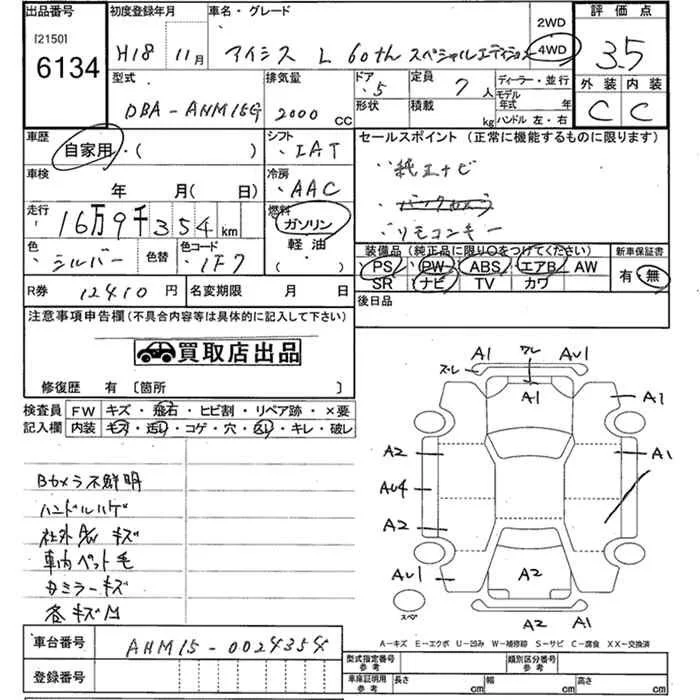 出品番号 初度登録年月 車名・グレード 評価点
[2150]
6134
H18 11月 アイシス L 60th スペシャルエディション
2WD
4WD
3.5
外装 内装
C C
型式 排気量 ドア 定員 ディーラー・並行
DBA-ANM15G 2000 CC
5 7人
モデル年式 年
形状 積載 kg ハンドル 左・右
車歴 自家用・( )
シフト ・IAT
セールスポイント (正常に機能するものに限ります)
・純正ナビ
・リモコンキー
車検 年 月(日)
冷房 ・AAC
走行 16万9千354km
燃料 ガソリン
軽油
( )
色 シルバー 色替 色コード 1F7
装備品 (純正品に限り○をつけてください) 新車保証書
PS PW ABS エアB AW
SR ナビ TV カワ
有・無
R券 12410円 名変期限 月 日
後日品
注意事項申告欄(不具合内容等は具体的に記入して下さい)
買取店出品
修復歴 有 〔箇所 〕
検査員記入欄
FW キズ・飛石・ヒビ割・リペア跡・×要
内装 キズ・汚レ・コゲ・穴・スレ・キレ・破レ
Bカメラ不鮮明
ハンドルハゲ
社外AW キズ
車内ペット毛
各キズM
A1 ワレ AU1
ズレ A1 A1
A2 A1
AU4
A2
AU1 A2
スペア A2 A1
A-キズ E-エクボ U-凹み W-補修跡 S-サビ C-腐食 XX-交換済
車台番号 ANM15-0024354
登録番号
型式指定番号 参考 類別区分番号 参考
車庫証明用 参考 長さ cm 幅 cm 高さ cm